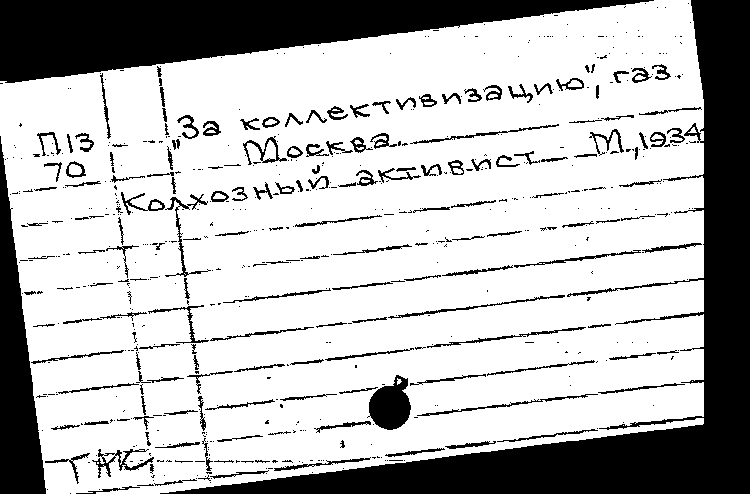 П13
70
„За коллективизацию", газ.
Москва.
Колхозный активист М., 1934
ГАК